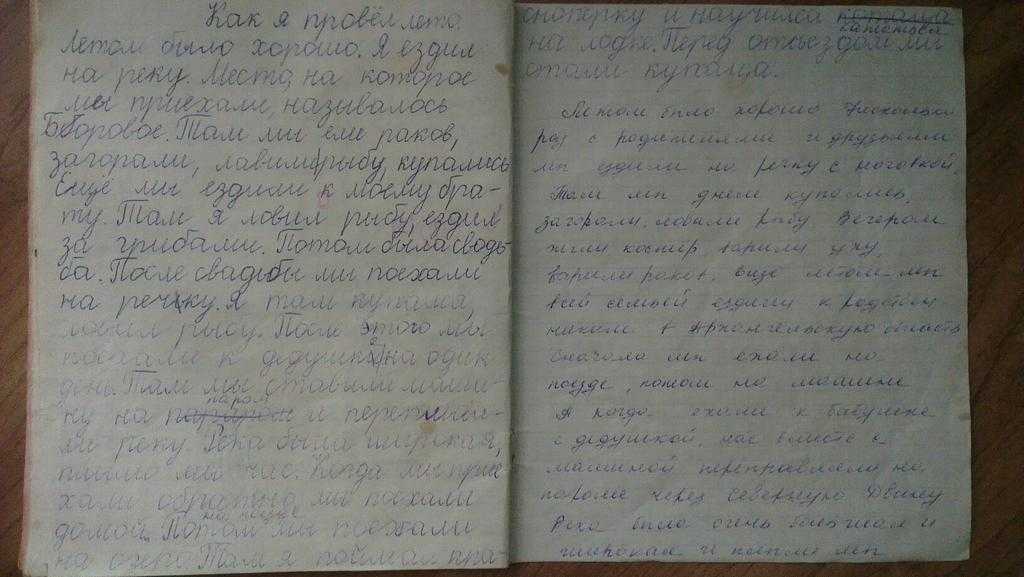 Как я провёл лето.
Летом было хорошо. Я ездил
на реку. Место, на которое
мы приехали, называлось
Боровое. Там ми ели раков,
загорали, ловили рыбу, купались
Еще ми ездили к моему бра-
ту. Там я ловил рыбу, ездил
за грибами. Потом была свадь
ба. После свадьбы ми поехали
на речку. Я там купался,
ловил рыбу. После этого мы
поехали к дедушке на один
день. Там мы ставили маши-
ну на паром и переплыли
реку. Река была широкая,
плыли ми час. Когда ми прие
хали обратно, ми поехали
домой. Потом ми поехали
на озеро. Там я поймал кра-
снопёрку и научился кататься
на лодке. Перед отъездом ми
стали купаться.
Летом было хорошо Несколько
раз с родителями и друзьями
мы ездили на речку с ночовкой.
Там мы днем купались,
загорали, ловили рыбу Вечером
жгли костёр, варили уху,
варили раков. Еще летом мы
всей семьёй ездили к родствен
никам в Архангельскую область
Сначала мы ехали на
поезде, потом на машине
А когда ехали к бабушке
с дедушкой, нас вместе с
машиной переправляли на
пароме через Северную Двину
Река была очень большая и
широкая и плыли мы